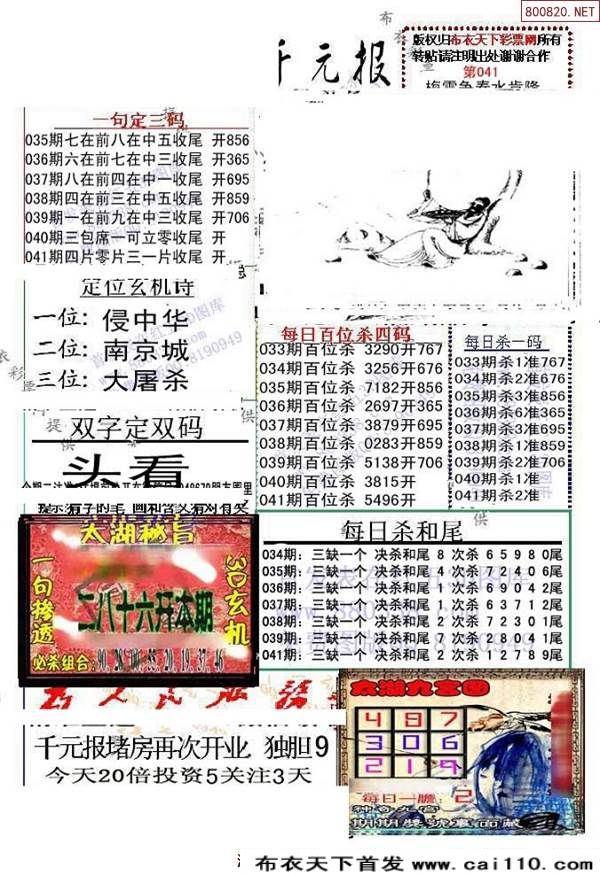 800820.NET
千元报
版权归布衣天下彩票网所有
转贴请注明出处谢谢合作
第041
一句定三码
035期七在前八在中五收尾 开856
036期六在前七在中三收尾 开365
037期八在前四在中一收尾 开695
038期四在前三在中五收尾 开859
039期一在前九在中三收尾 开706
040期三包席一可立零收尾 开
041期四片零片三一片收尾 开
定位玄机诗
一位: 侵中华
二位: 南京城
三位: 大屠杀
双字定双码
头看
每日百位杀四码
033期百位杀 3290开767
034期百位杀 3256开676
035期百位杀 7182开856
036期百位杀 2697开365
037期百位杀 3879开695
038期百位杀 0283开859
039期百位杀 5138开706
040期百位杀 3815开
041期百位杀 5496开
每日杀一码
033期杀1准767
034期杀2准676
035期杀3准856
036期杀6准365
037期杀3准695
038期杀1准859
039期杀2准706
040期杀1准
041期杀2准
每日杀和尾
034期: 三缺一个 决杀和尾 8 次杀 6 5 9 8 0尾
035期: 三缺一个 决杀和尾 4 次杀 2 1 4 0 6尾
036期: 三缺一个 决杀和尾 1 次杀 6 9 0 4 2尾
037期: 三缺一个 决杀和尾 1 次杀 6 3 7 1 2尾
038期: 三缺一个 决杀和尾 2 次杀 7 2 3 0 1尾
039期: 三缺一个 决杀和尾 7 次杀 2 8 0 4 1尾
041期: 三缺一个 决杀和尾 2 次杀 1 2 7 8 9尾
太湖秘旨
一句掺透
3D玄机
二八十六开本期
必杀组合:
千元报堵房再次开业 独胆9
今天20倍投资5关注3天
太湖九宫图
4 8 7
3 0 6
2 1 9
每日一胆: 2
布衣天下首发 www.cai110.com